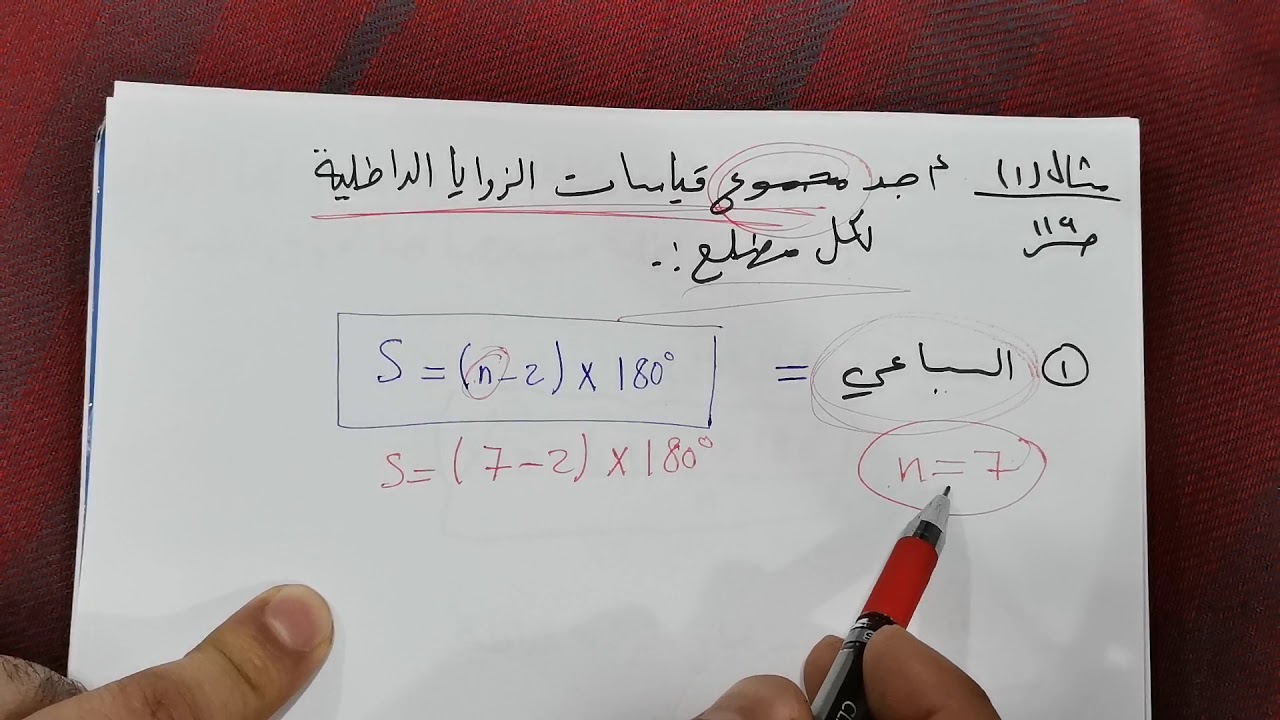 مثال (١) أجد مجموع قياسات الزوايا الداخلية
صـ ١١٩ لكل مضلع :.
① السباعي = S = (n-2) × 180°
n = 7 S = (7-2) × 180°